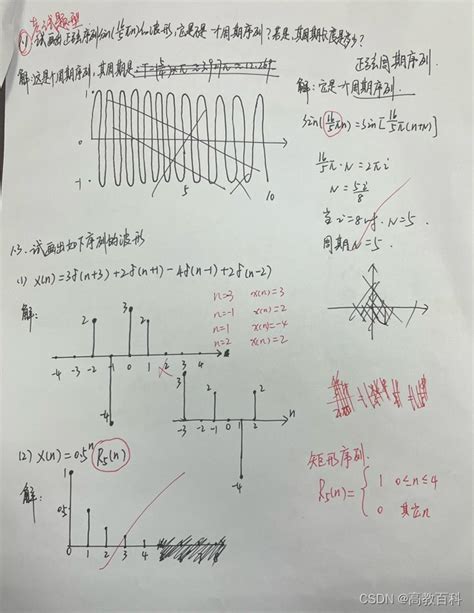 考试题型
(1) 试画出正弦序列sin(16/5 πn)的波形,它是否是一个周期序列?若是,其周期长度是多少?
解:这是个周期序列,其周期是
0
-1
5
10
正弦周期序列.
解:它是一个周期序列.
sin(16/5 πn)=sin[16/5 π(n+N)]
16/5 π·N=2πi
N=5i/8
当i=8时,N=5.
周期N=5.
1.3.试画出如下序列的波形
(1) x(n)=3δ(n+3)+2δ(n+1)-4δ(n-1)+2δ(n-2)
解:
2
3
2
-4 -3 -2 -1 0 1 2 3 4
-4
n=3 x(n)=3
n=-1 x(n)=2
n=1 x(n)=-4
n=2 x(n)=2
3
2
2
-3 -2 -1 0 1 2 n
-4
(2) x(n)=0.5ⁿR₅(n)
解:
1
0.5
0 1 2 3 4
矩形序列.
R₅(n)={ 1 0≤n≤4
0 其它n
CSDN @高教百科